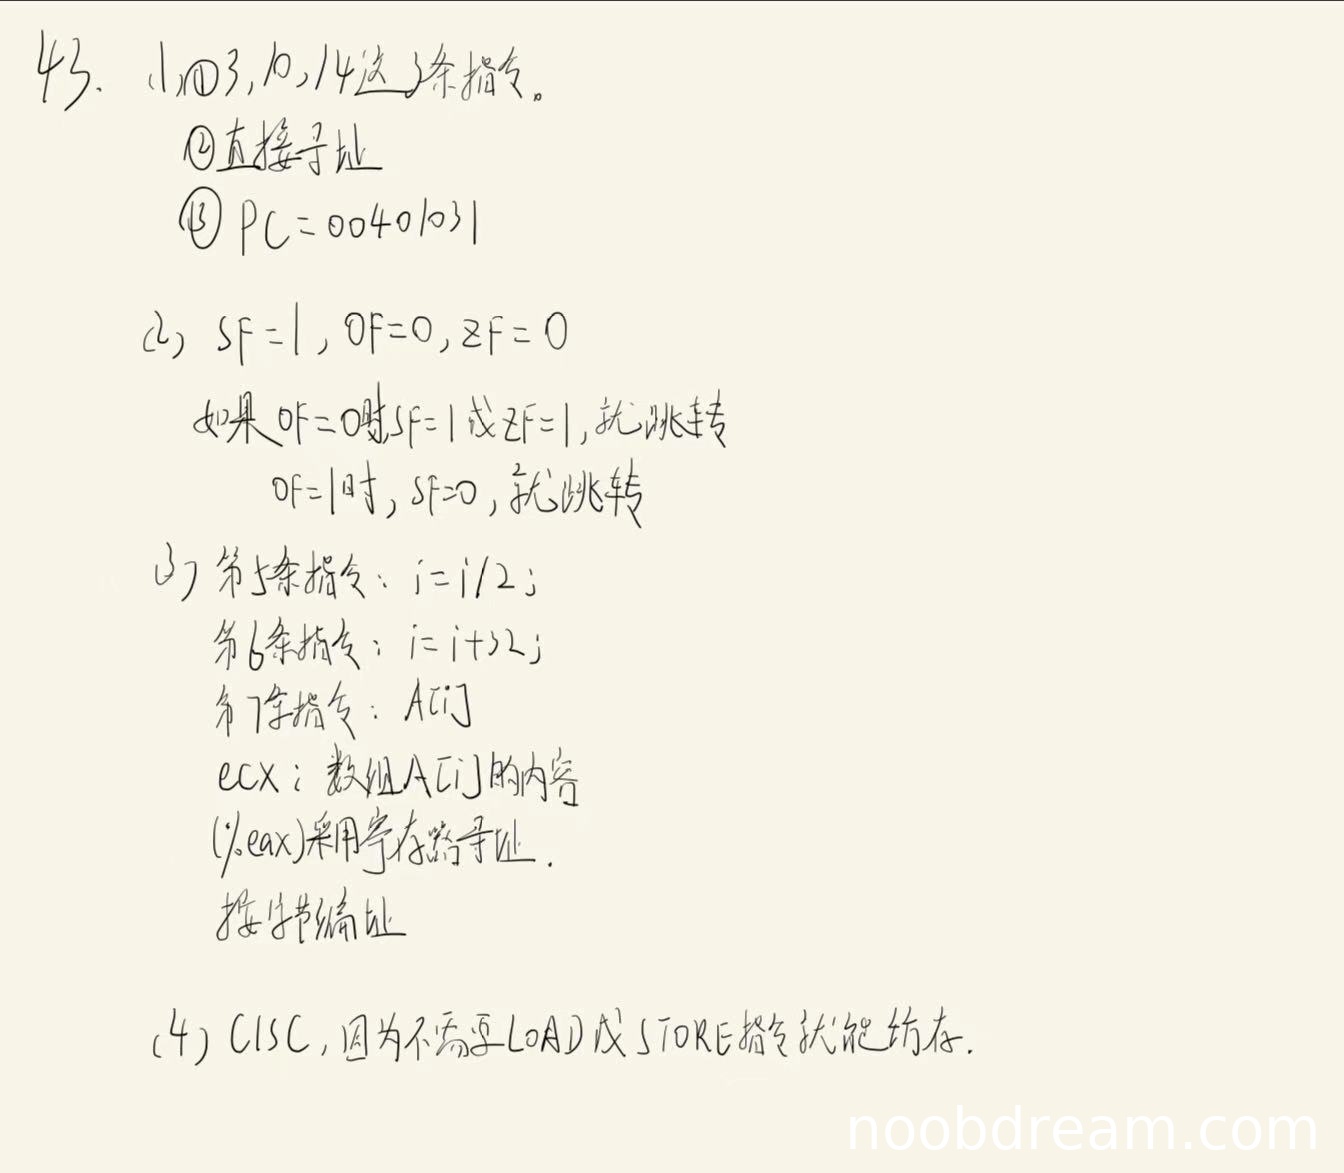 43. (1)①3,10,14这3条指令。
②直接寻址
③PC=00401031
(2) SF=1,OF=0,ZF=0
如果OF=0时,SF=1或ZF=1,就跳转
OF=1时,SF=0,就跳转
(3) 第5条指令:i=i/2;
第6条指令:i=i+32;
第7条指令:A[i]
ecx:数组A[i]的内容
(%eax)采用寄存器寻址.
按字节编址
(4) CISC,因为不需要LOAD或STORE指令就能访存.
noobdream.com